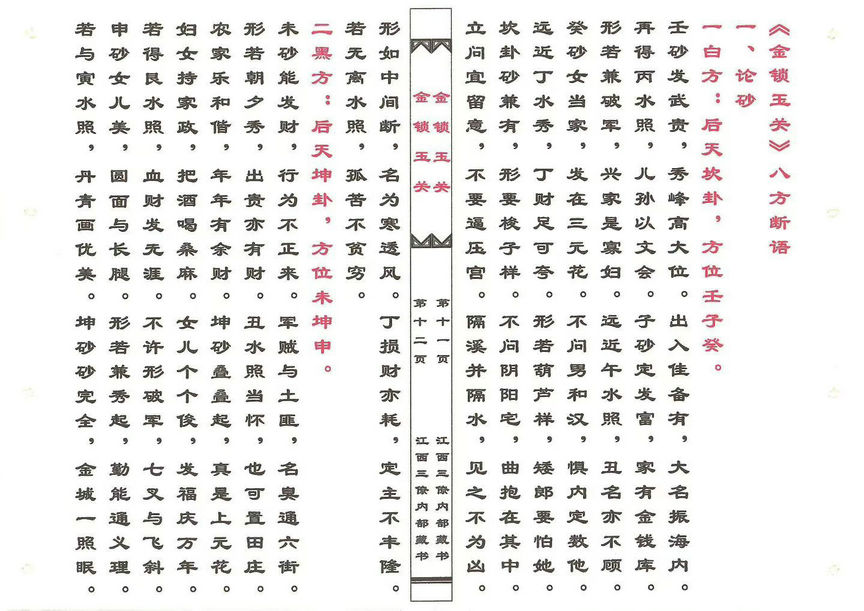 《金锁玉关》八方断语
一、论砂
一白方：后天坎卦，方位壬子癸。
壬砂发武贵，秀峰高大位。出入佳备有，大名振海内。
再得丙水照，儿孙以文会。子砂定发富，家有金钱库。
形若兼破军，兴家是寡妇。远近午水照，丑名亦不顾。
癸砂女当家，发在三元花。不问男和汉，惧内定数他。
远近丁水秀，丁财足可夸。形若葫芦样，矮郎要怕她。
坎卦砂兼有，形要梭子样。不问阴阳宅，曲抱在其中。
立问宜留意，不要逼压宫。隔溪并隔水，见之不为凶。
金锁玉关 第十一页 江西三僚内部藏书
金锁玉关 第十二页 江西三僚内部藏书
形如中间断，名为寒透风。丁损财亦耗，定主不丰隆。
若无离水照，孤苦不贫穷。
二黑方：后天坤卦，方位未坤申。
未砂能发财，行为不正来。军贼与土匪，名臭通六街。
形若朝夕秀，出贵亦有财。丑水照当怀，也可置田庄。
农家乐和偕，年年有余财。坤砂叠叠起，真是上元花。
妇女持家政，把酒喝桑麻。女儿个个俊，发福庆万年。
若得艮水照，血财发无涯。不许形破军，七叉与飞斜。
申砂女儿美，圆面与长腿。形若兼秀起，勤能通义理。
若与寅水照，丹青画优美。坤砂砂完全，金城一照眠。